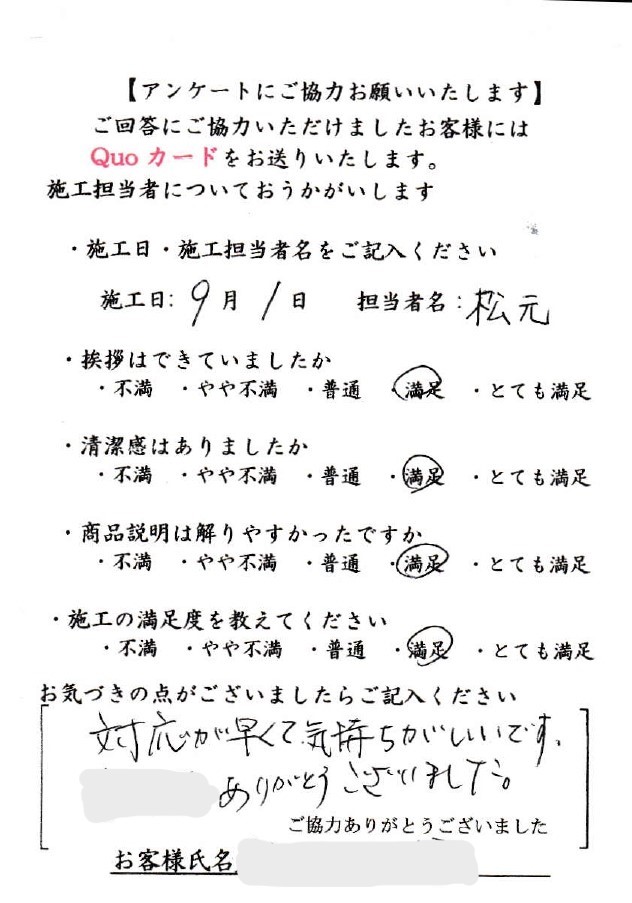 【アンケートにご協力お願いいたします】
ご回答にご協力いただけましたお客様には
Quoカードをお送りいたします。
施工担当者についておうかがいします
・施工日・施工担当者名をご記入ください
施工日: 9月 1日 担当者名:松元
・挨拶はできていましたか
・不満 ・やや不満 ・普通 ・満足 ・とても満足
・清潔感はありましたか
・不満 ・やや不満 ・普通 ・満足 ・とても満足
・商品説明は解りやすかったですか
・不満 ・やや不満 ・普通 ・満足 ・とても満足
・施工の満足度を教えてください
・不満 ・やや不満 ・普通 ・満足 ・とても満足
お気づきの点がございましたらご記入ください
対応が早くて気持ちがいいです。
ありがとうございました。
ご協力ありがとうございました
お客様氏名